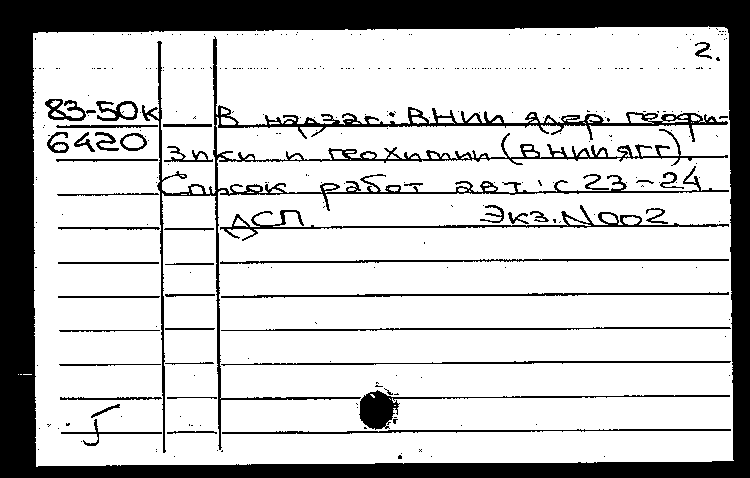 2.
83-50к В надзаг.: ВНИИ ядер. геофи-
6420 зики и геохимии (ВНИИЯГГ).
Список работ авт.: с. 23-24.
ДСП. Экз. N 002.